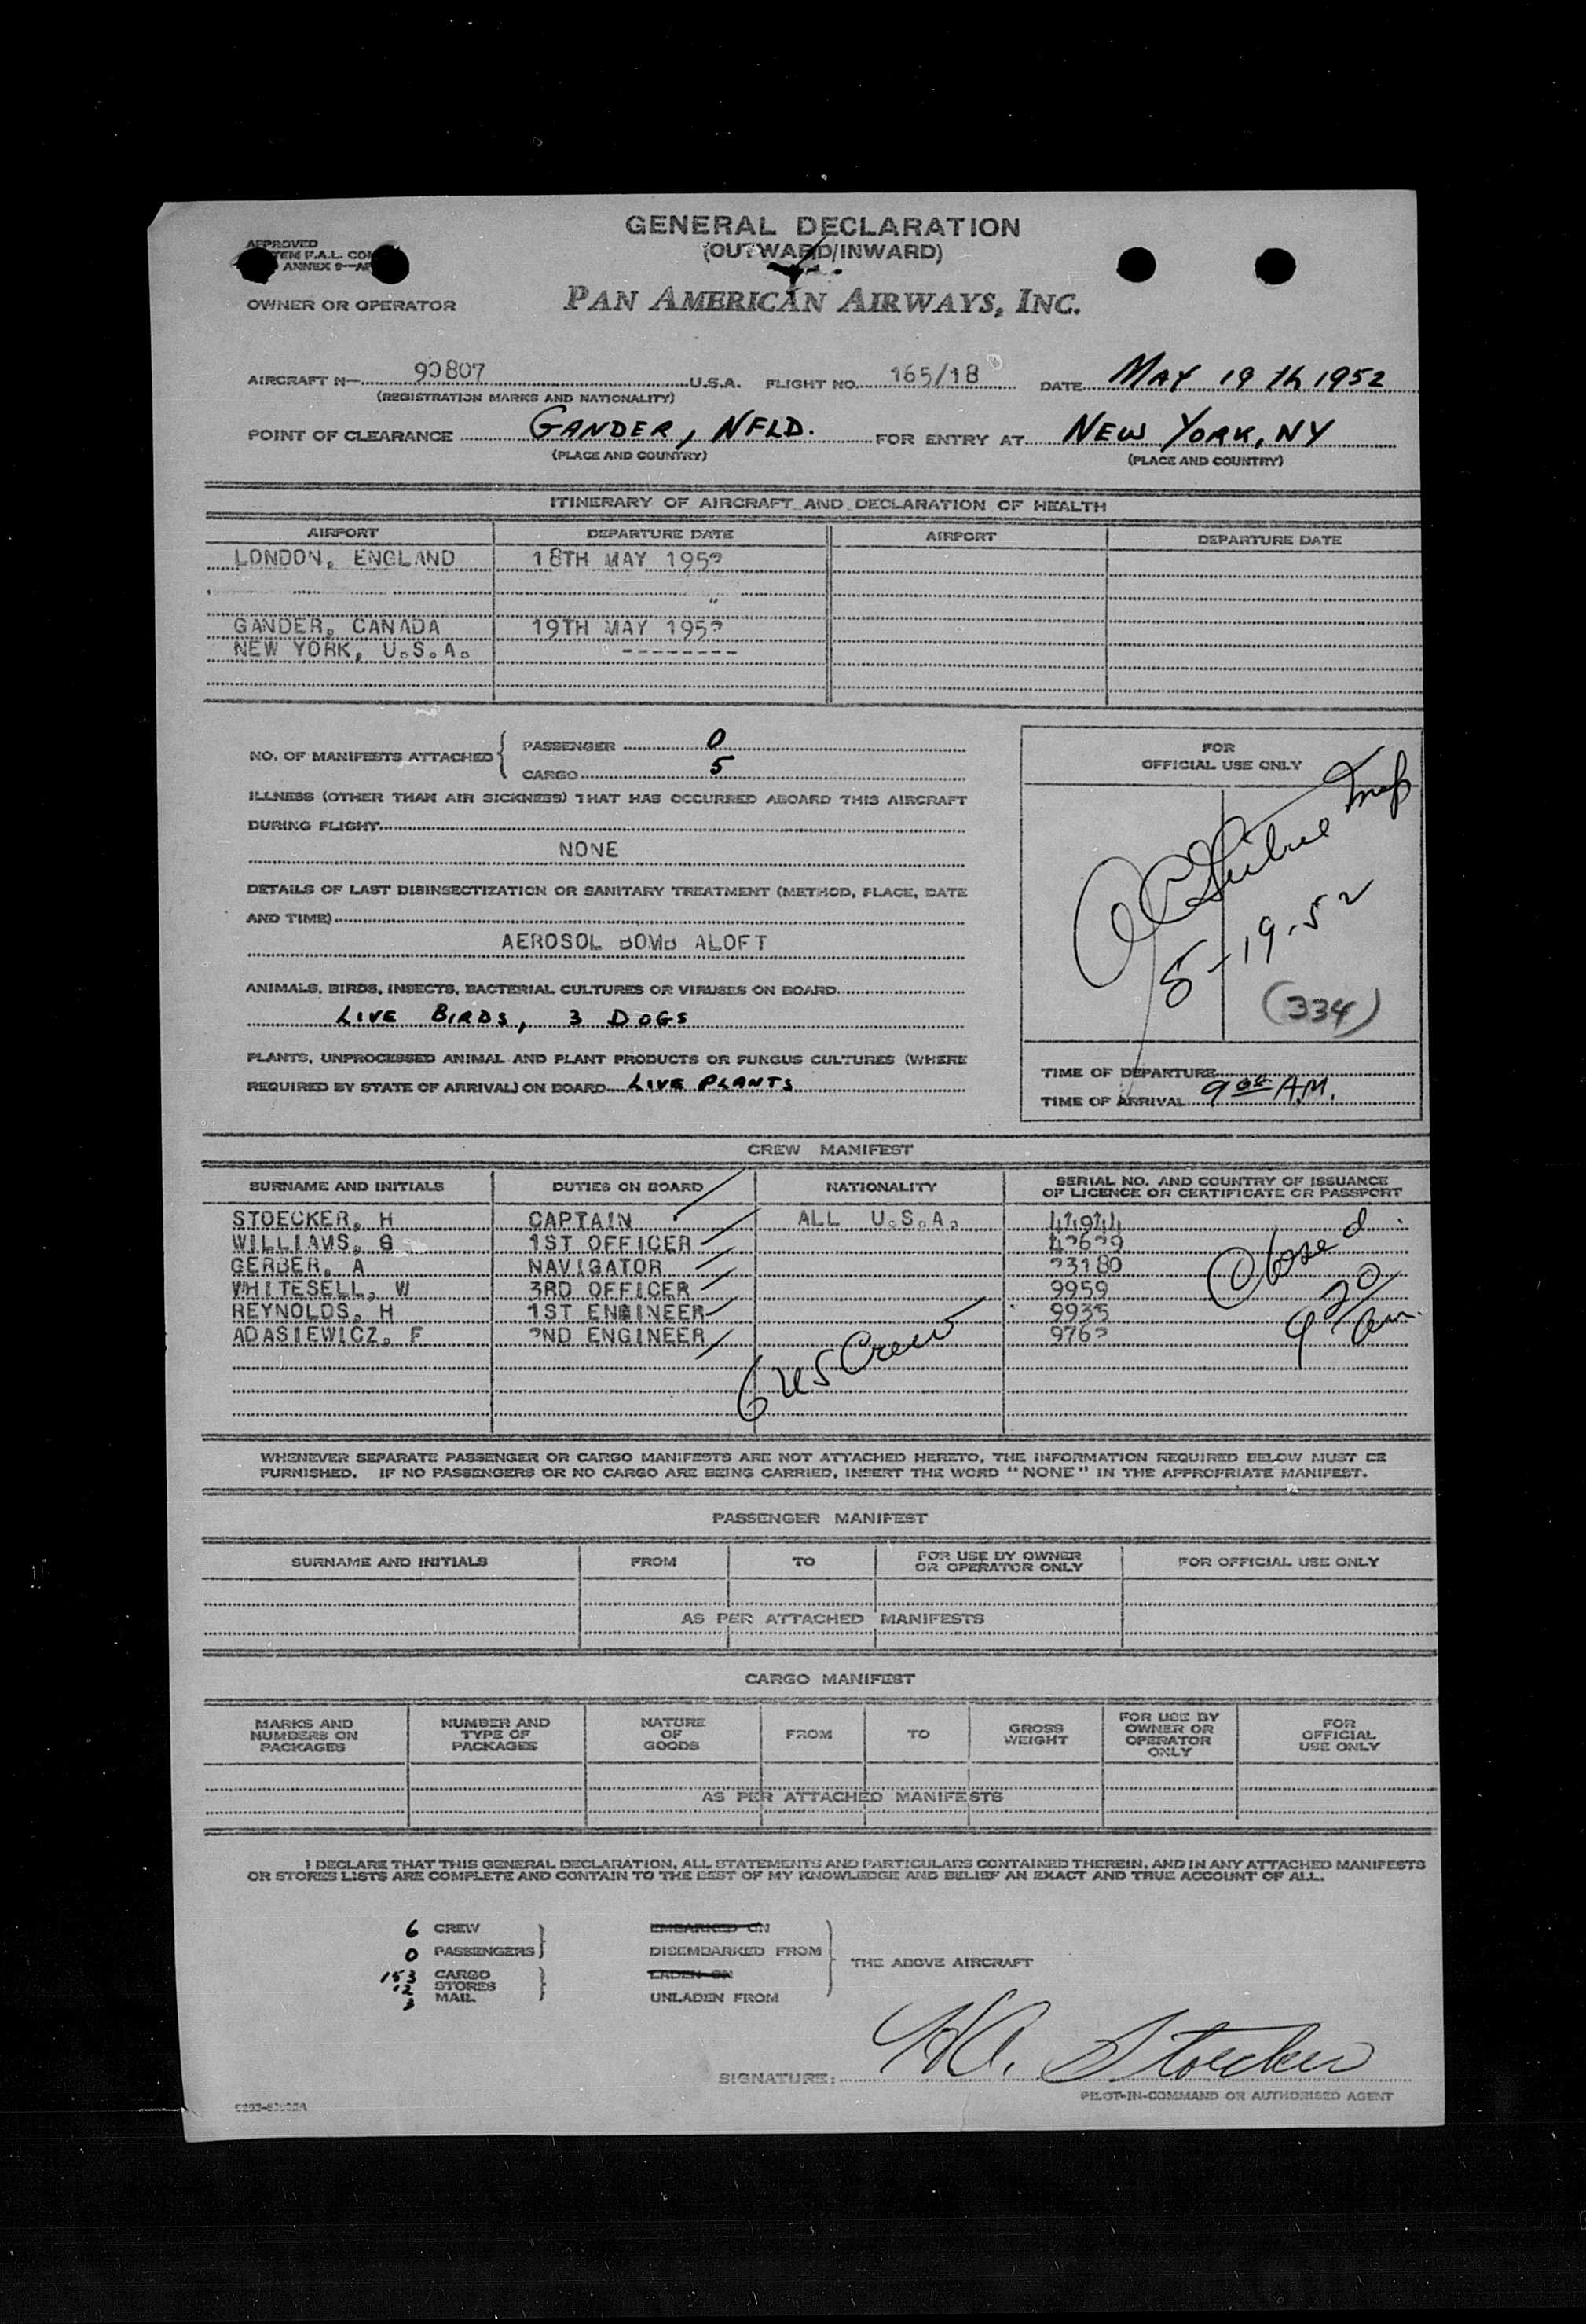 GENERAL DECLARATION
(OUTWARD/INWARD)
APPROVED
F.A.L.
ANNEX 9
OWNER OR OPERATOR PAN AMERICAN AIRWAYS, INC.
AIRCRAFT N— 90807 U.S.A. FLIGHT NO. 165/18 DATE MAY 19 th 1952
(REGISTRATION MARKS AND NATIONALITY)
POINT OF CLEARANCE GANDER, NFLD. FOR ENTRY AT NEW YORK, NY
(PLACE AND COUNTRY) (PLACE AND COUNTRY)
ITINERARY OF AIRCRAFT AND DECLARATION OF HEALTH
AIRPORT DEPARTURE DATE AIRPORT DEPARTURE DATE
LONDON, ENGLAND 18TH MAY 1952
"
GANDER, CANADA 19TH MAY 1952
NEW YORK, U.S.A. --------
NO. OF MANIFESTS ATTACHED { PASSENGER 0
CARGO 5
ILLNESS (OTHER THAN AIR SICKNESS) THAT HAS OCCURRED ABOARD THIS AIRCRAFT
DURING FLIGHT
NONE
DETAILS OF LAST DISINSECTIZATION OR SANITARY TREATMENT (METHOD, PLACE, DATE
AND TIME)
AEROSOL BOMB ALOFT
ANIMALS, BIRDS, INSECTS, BACTERIAL CULTURES OR VIRUSES ON BOARD
LIVE BIRDS, 3 DOGS
PLANTS, UNPROCESSED ANIMAL AND PLANT PRODUCTS OR FUNGUS CULTURES (WHERE
REQUIRED BY STATE OF ARRIVAL) ON BOARD LIVE PLANTS
FOR
OFFICIAL USE ONLY
5-19-52
(334)
TIME OF DEPARTURE
TIME OF ARRIVAL 9 00 A.M.
CREW MANIFEST
SURNAME AND INITIALS DUTIES ON BOARD NATIONALITY SERIAL NO. AND COUNTRY OF ISSUANCE
OF LICENCE OR CERTIFICATE OR PASSPORT
STOECKER, H CAPTAIN ALL U.S.A.
WILLIAMS, G 1ST OFFICER 42629
GERBER, A NAVIGATOR 23180
WHITESELL, W 3RD OFFICER 9959
REYNOLDS, H 1ST ENGINEER 9935
ADASIEWICZ, F 2ND ENGINEER 9762
Closed
9 20 am.
6 US Crew
WHENEVER SEPARATE PASSENGER OR CARGO MANIFESTS ARE NOT ATTACHED HERETO, THE INFORMATION REQUIRED BELOW MUST BE
FURNISHED. IF NO PASSENGERS OR NO CARGO ARE BEING CARRIED, INSERT THE WORD "NONE" IN THE APPROPRIATE MANIFEST.
PASSENGER MANIFEST
SURNAME AND INITIALS FROM TO FOR USE BY OWNER
OR OPERATOR ONLY FOR OFFICIAL USE ONLY
AS PER ATTACHED MANIFESTS
CARGO MANIFEST
MARKS AND
NUMBERS ON
PACKAGES
NUMBER AND
TYPE OF
PACKAGES
NATURE
OF
GOODS
FROM
TO
GROSS
WEIGHT
FOR USE BY
OWNER OR
OPERATOR
ONLY
FOR
OFFICIAL
USE ONLY
AS PER ATTACHED MANIFESTS
I DECLARE THAT THIS GENERAL DECLARATION, ALL STATEMENTS AND PARTICULARS CONTAINED THEREIN, AND IN ANY ATTACHED MANIFESTS
OR STORES LISTS ARE COMPLETE AND CONTAIN TO THE BEST OF MY KNOWLEDGE AND BELIEF AN EXACT AND TRUE ACCOUNT OF ALL.
6 CREW EMBARKED ON
0 PASSENGERS DISEMBARKED FROM THE ABOVE AIRCRAFT
153 CARGO LADEN ON
12 STORES
3 MAIL UNLADEN FROM
SIGNATURE: H.A. Stoecker
PILOT-IN-COMMAND OR AUTHORISED AGENT